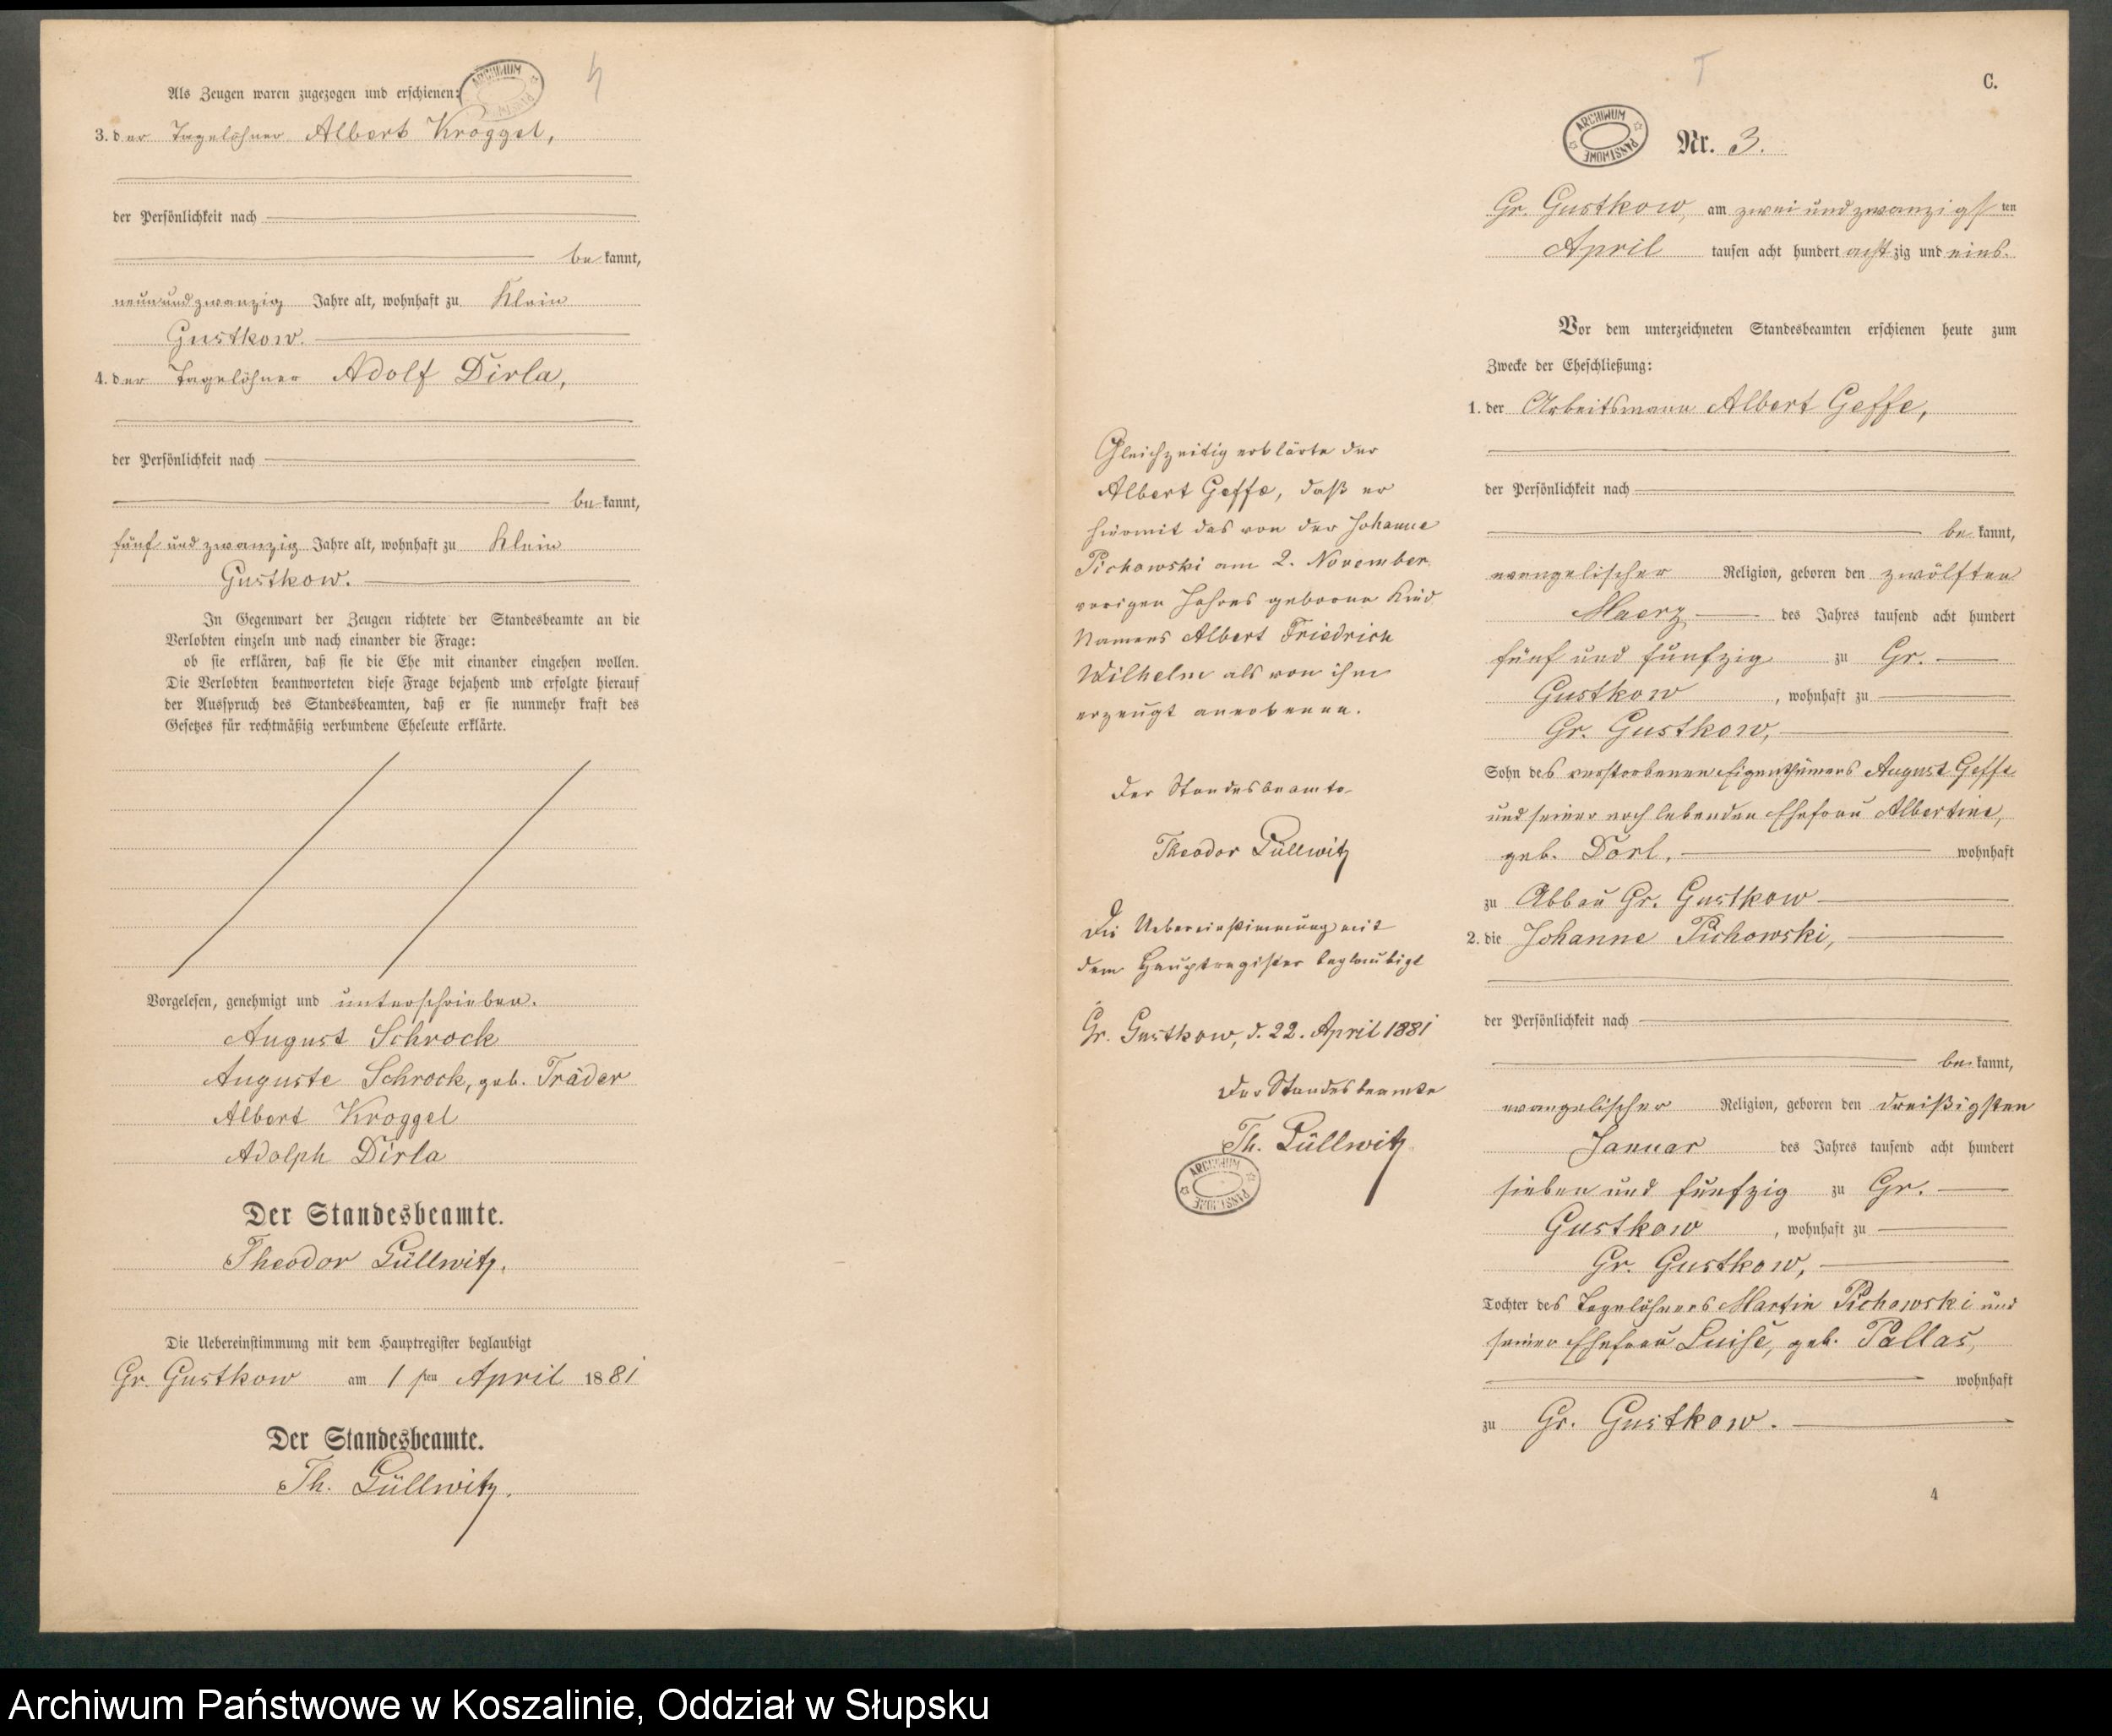 Als Zeugen waren zugezogen und erschienen:
3. der Tagelöhner Albert Kroggel,
der Persönlichkeit nach
be kannt,
neunundzwanzig Jahre alt, wohnhaft zu Klein
Gustkow.
4. der Tagelöhner Adolf Dirla,
der Persönlichkeit nach
be kannt,
fünf und zwanzig Jahre alt, wohnhaft zu Klein
Gustkow.
In Gegenwart der Zeugen richtete der Standesbeamte an die
Verlobten einzeln und nach einander die Frage:
ob sie erklären, daß sie die Ehe mit einander eingehen wollen.
Die Verlobten beantworteten diese Frage bejahend und erfolgte hierauf
der Ausspruch des Standesbeamten, daß er sie nunmehr kraft des
Gesetzes für rechtmäßig verbundene Eheleute erklärte.
Vorgelesen, genehmigt und unterschrieben.
August Schrock
Auguste Schrock, geb. Träder
Albert Kroggel
Adolph Dirla
Der Standesbeamte.
Theodor Züllwitz.
Die Uebereinstimmung mit dem Hauptregister beglaubigt
Gr. Gustkow am 1 sten April 1881
Der Standesbeamte.
Th. Züllwitz.
Gleichzeitig erklärte der
Albert Geffe, daß er
hiermit das von der Johanne
Pichowski am 2. November
vorigen Jahres geborene Kind
Namens Albert Friedrich
Wilhelm als von ihm
erzeugt anerkenne.
Der Standesbeamte
Theodor Züllwitz
Die Uebereinstimmung mit
dem Hauptregister beglaubigt
Gr. Gustkow, d. 22. April 1881
Der Standesbeamte
Th. Züllwitz
ARCHIWUM PAŃSTWOWE
C.
ARCHIWUM PAŃSTWOWE
Nr. 3.
Gr. Gustkow, am zwei und zwanzigsten
April tausen acht hundert achtzig und eins.
Vor dem unterzeichneten Standesbeamten erschienen heute zum
Zwecke der Eheschließung:
1. der Arbeitsmann Albert Geffe,
der Persönlichkeit nach
be kannt,
evangelischer Religion, geboren den zwölften
Maerz des Jahres tausend acht hundert
fünf und fünfzig zu Gr.
Gustkow, wohnhaft zu
Gr. Gustkow,
Sohn des verstorbenen Eigenthümers August Geffe
und seiner noch lebenden Ehefrau Albertine,
geb. Dorl, wohnhaft
zu Abbau Gr. Gustkow
2. die Johanne Pichowski,
der Persönlichkeit nach
be kannt,
evangelischer Religion, geboren den dreißigsten
Januar des Jahres tausend acht hundert
sieben und fünfzig zu Gr.
Gustkow, wohnhaft zu
Gr. Gustkow,
Tochter des Tagelöhners Martin Pichowski und
seiner Ehefrau Luise, geb. Pallas,
wohnhaft
zu Gr. Gustkow.
4
Archiwum Państwowe w Koszalinie, Oddział w Słupsku